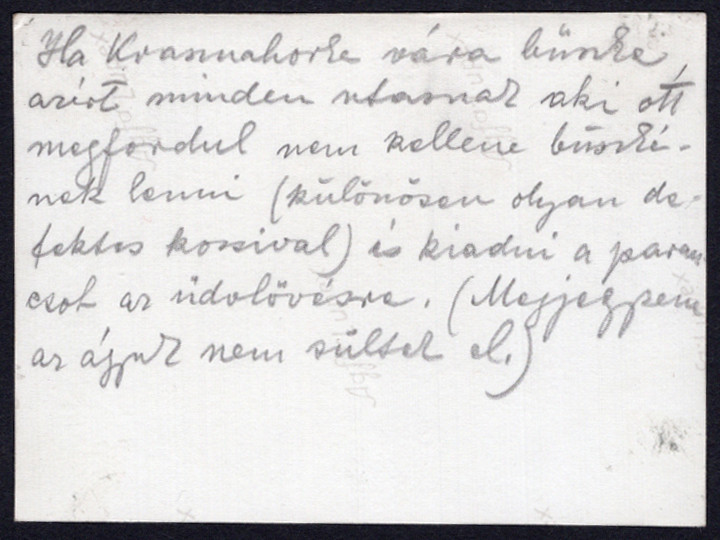 Ha Krasznahorka vára büszke,
azért minden utasnak aki ott
megfordul nem kellene büszké-
nek lenni (különösen olyan de-
fektes kocsival) és kiadni a paran
csot az üdvlövésre. (Megjegyzem
az ágyuk nem sültek el.)